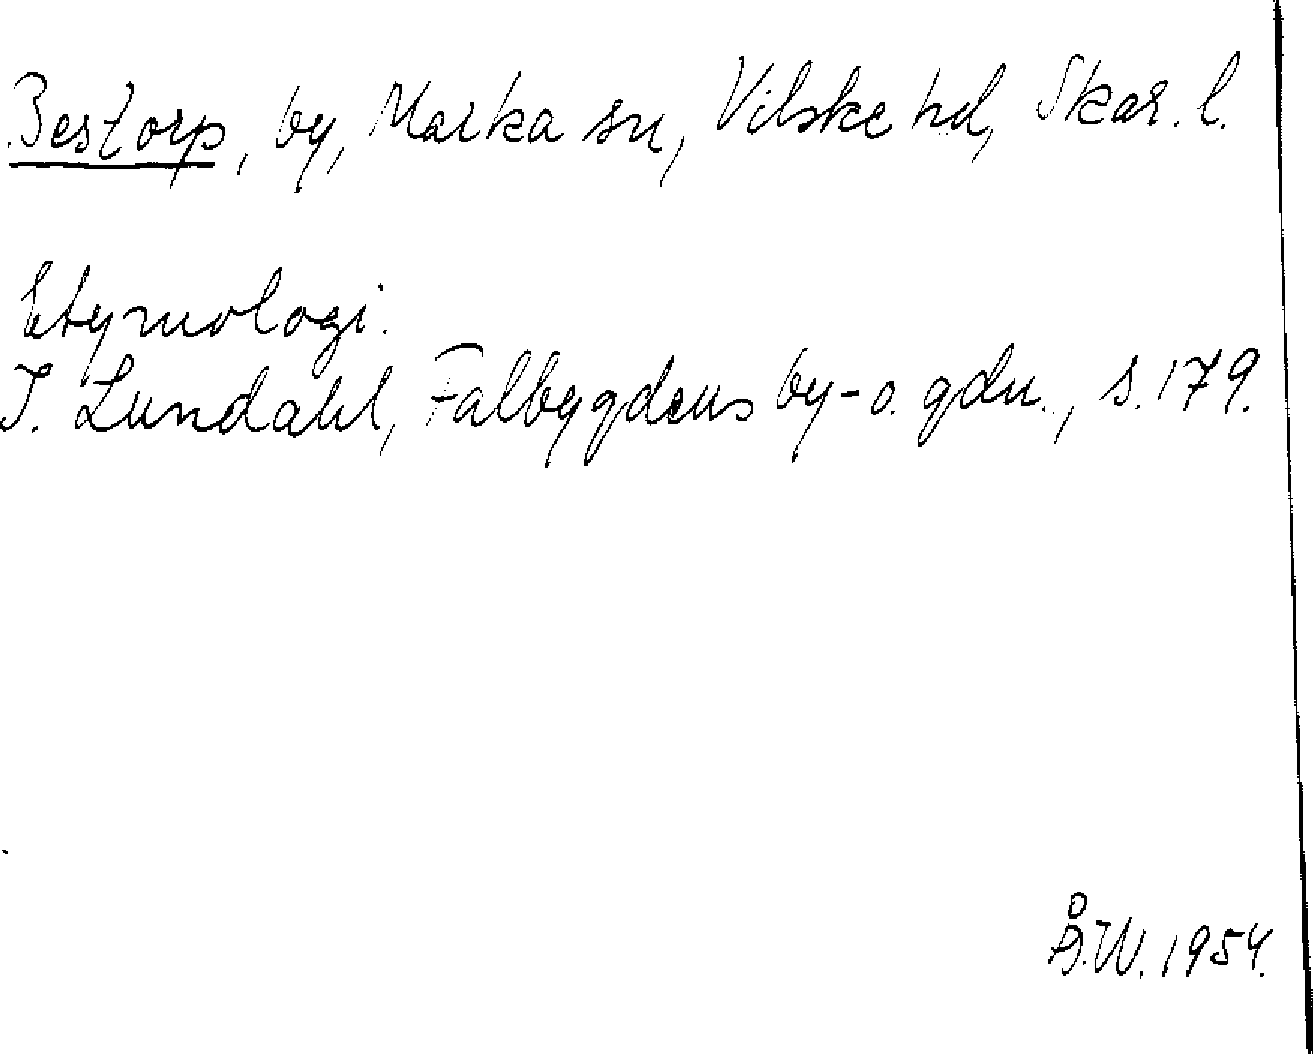 Bestorp, by, Marka sn, Vilske hd, Skar. l.
Etymologi.
I. Lundahl, Falbygdens by- o. gdn., s. 179.
Å.W. 1954.